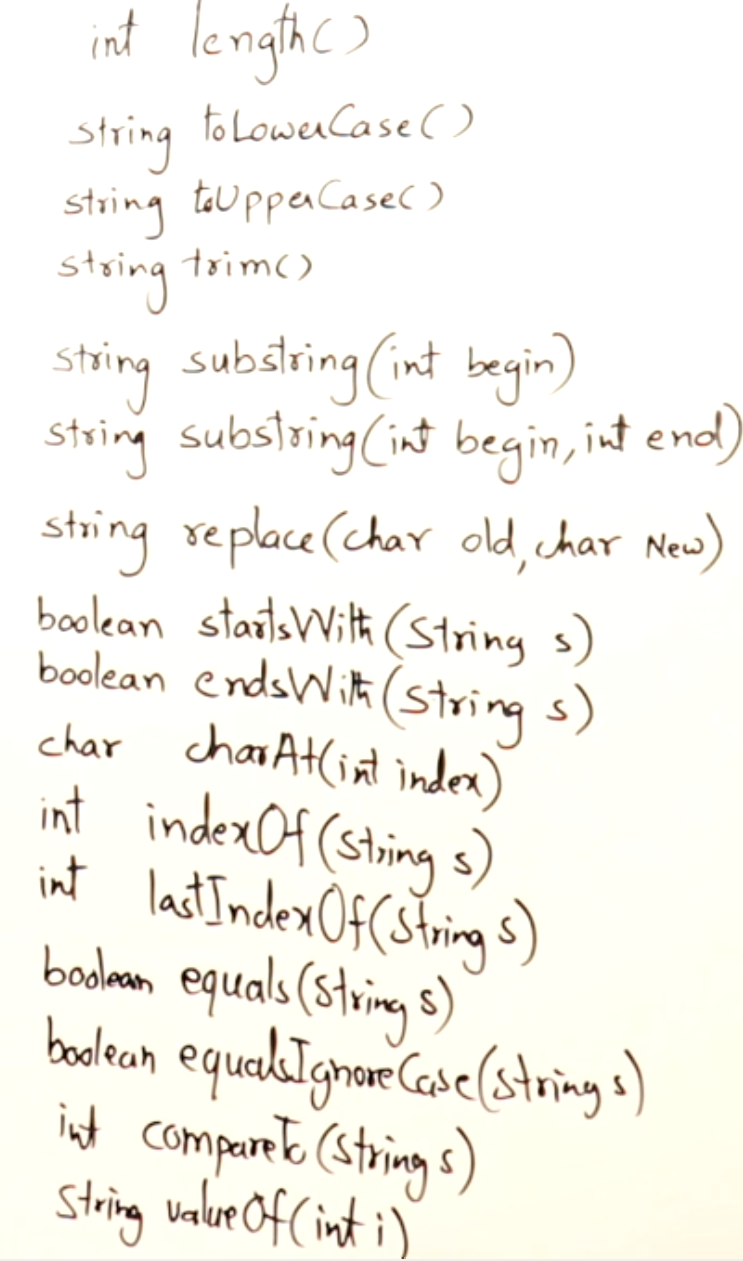 int length()
string toLowerCase()
string toUpperCase()
string trim()
string substring(int begin)
string substring(int begin, int end)
string replace(char old, char New)
boolean startsWith(String s)
boolean endsWith(String s)
char charAt(int index)
int indexOf(String s)
int lastIndexOf(String s)
boolean equals(String s)
boolean equalsIgnoreCase(String s)
int compareTo(String s)
String valueOf(int i)